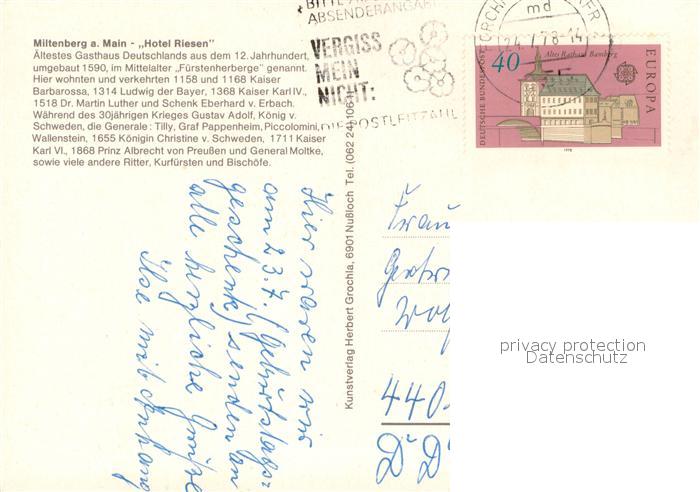 BITTE
ABSENDERANGA
VERGISS
MEIN
NICHT:
DIE POSTLEITZAHL
md
24.7.78-14
40
Altes Rathaus Bamberg
DEUTSCHE BUNDESPOST
EUROPA
1978
Miltenberg a. Main - „Hotel Riesen"
Ältestes Gasthaus Deutschlands aus dem 12. Jahrhundert,
umgebaut 1590, im Mittelalter „Fürstenherberge" genannt.
Hier wohnten und verkehrten 1158 und 1168 Kaiser
Barbarossa, 1314 Ludwig der Bayer, 1368 Kaiser Karl IV.,
1518 Dr. Martin Luther und Schenk Eberhard v. Erbach.
Während des 30jährigen Krieges Gustav Adolf, König v.
Schweden, die Generale: Tilly, Graf Pappenheim, Piccolomini,
Wallenstein, 1655 Königin Christine v. Schweden, 1711 Kaiser
Karl VI., 1868 Prinz Albrecht von Preußen und General Moltke,
sowie viele andere Ritter, Kurfürsten und Bischöfe.
Hier waren wir
am 23.7. (Geburtstags-
geschenk) senden an
alle herzliche Grüße
Ilse mit Anhang
Kunstverlag Herbert Grochla, 6901 Nußloch Tel. (062 24) 1061
Frau
Gertr
440
privacy protection
Datenschutz